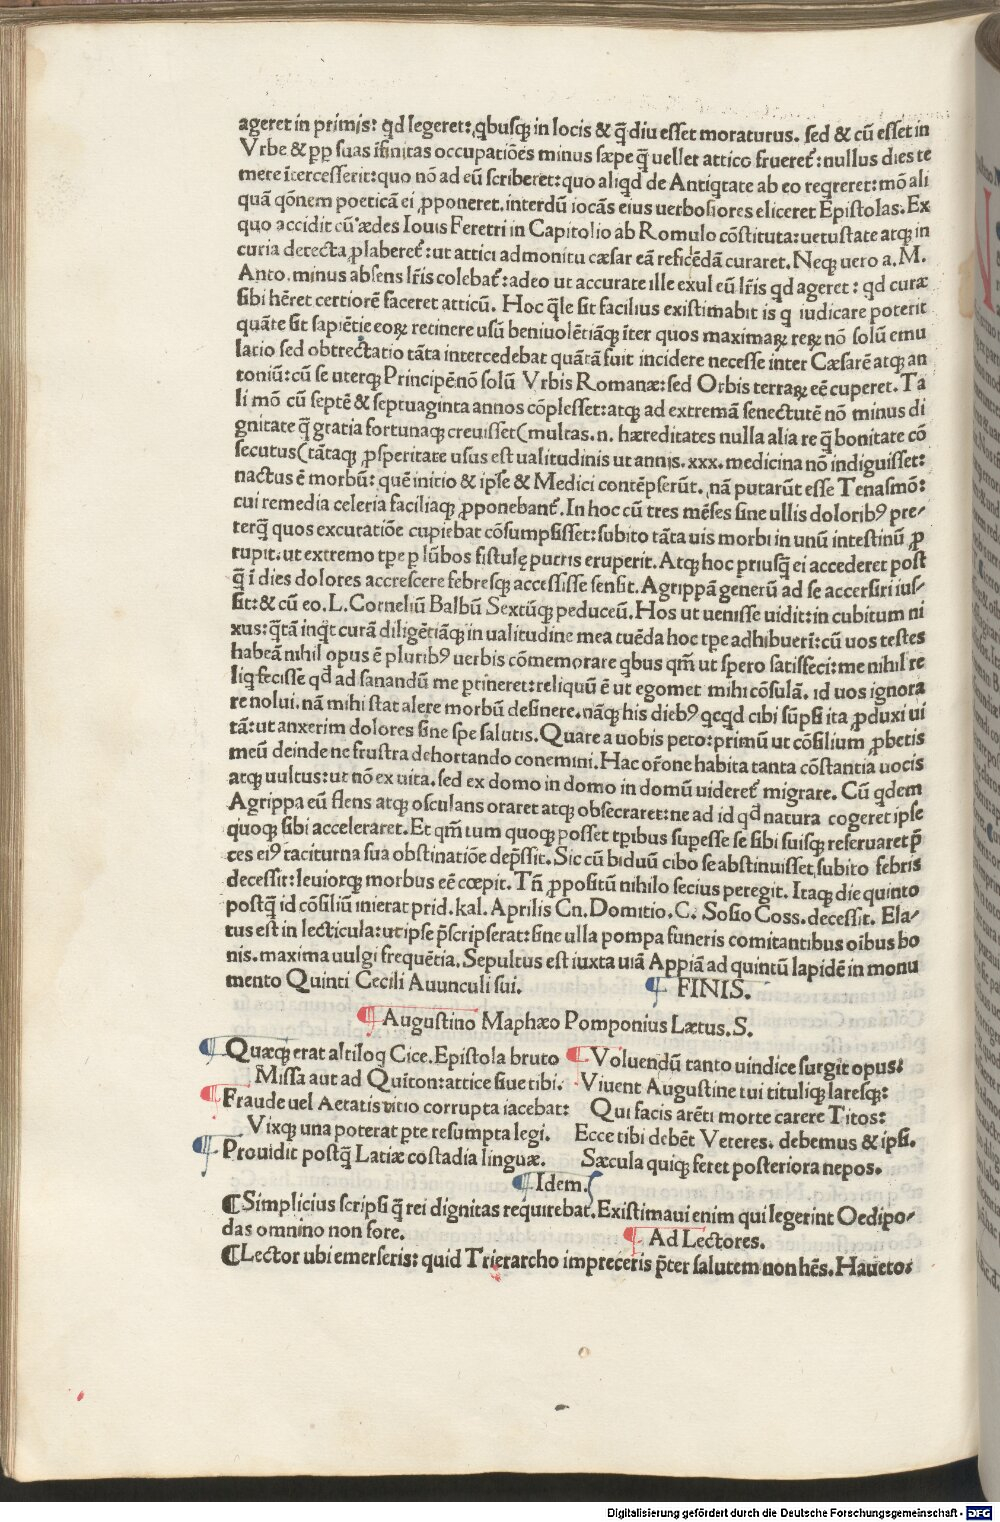 ageret in primis: qd legeret: qbusqꝫ in locis & q̃ diu esset moraturus. sed & cũ esset in
Vrbe & ꝑp suas ĩfinitas occupatiões minus sæpe q̃ uellet attico frueret̃: nullus dies te
mere ĩtercesserit: quo nõ ad eũ scriberet: quo aliqd de Antiqtate ab eo reqreret: mõ ali
quã qõnem poeticã ei ꝓponeret. interdũ iocãs eius uerbosiores eliceret Epistolas. Ex
quo accidit cũ ædes Iouis Feretri in Capitolio ab Romulo cõstituta: uetustate atqꝫ in
curia detecta ꝓlaberet̃: ut attici admonitu cæsar eã reficẽdã curaret. Neqꝫ uero a. M.
Anto. minus absens lr̃is colebat̃: adeo ut accurate ille exul eũ lr̃is qd ageret: qd curæ
sibi hẽret certiorẽ faceret atticũ. Hoc q̃le sit facilius existimabit is q iudicare poterit
quãte sit sapiẽtie eoꝝ retinere usũ beniuolẽtiãqꝫ ĩter quos maximaꝝ reꝝ nõ solũ emu
latio sed obtrectatio tãta intercedebat quãtã fuit incidere necesse inter Cæsarẽ atqꝫ an
toniũ: cũ se uterqꝫ Principẽ nõ solũ Vrbis Romanæ: sed Orbis terraꝝ eẽ cuperet. Ta
li mõ cũ septẽ & septuaginta annos cõplesset: atqꝫ ad extremã senectutẽ nõ minus di
gnitate q̃ gratia fortunaqꝫ creuisset (multas .n. hæreditates nulla alia re q̃ bonitate cõ
secutus (tãtaqꝫ ꝓsperitate usus est ualitudinis ut annis. xxx. medicina nõ indiguisset:
nactus ẽ morbũ: quẽ initio & ipse & Medici contẽpserũt. nã putarũt esse Tenasmõ:
cui remedia celeria faciliaqꝫ ꝓponebant̃. In hoc cũ tres mẽses sine ullis doloribꝰ pre/
terq̃ quos excuratiõe cupiebat cõsumpsisset: subito tãta uis morbi in unũ intestinũ ꝓ
rupit. ut extremo tpe ꝑ lũbos fistulę putris eruperit. Atqꝫ hoc priusq̃ ei accederet post
q̃ ĩ dies dolores accrescere febresqꝫ accessisse sensit. Agrippã generũ ad se accersiri ius/
sit: & cũ eo. L. Corneliũ Balbũ Sextũqꝫ peduceũ. Hos ut uenisse uidit: in cubitum ni
xus: q̃tã inqt curã diligẽtiãqꝫ in ualitudine mea tuẽda hoc tpe adhibuerĩ: cũ uos testes
habeã nihil opus ẽ pluribꝰ uerbis cõmemorare qbus qm̃ ut spero satisfeci: me nihil re
liq fecisse qd ad sanandũ me ꝑtineret: reliquũ ẽ ut egomet mihi cõsulã. id uos ignora
re nolui. nã mihi stat alere morbũ desinere. nãqꝫ his diebꝰ qcqd cibi sũpsi ita ꝓduxi ui
tã: ut anxerim dolores sine spe salutis. Quare a uobis peto: primũ ut cõsilium ꝓbetis
meũ deinde ne frustra dehortando conemini. Hac or̃one habita tanta cõstantia uocis
atqꝫ uultus: ut nõ ex uita. sed ex domo in domo in domũ uideret̃ migrare. Cũ qdem
Agrippa eũ flens atqꝫ osculans oraret atqꝫ obsecraret: ne ad id qd natura cogeret ipse
quoqꝫ sibi acceleraret. Et qm̃ tum quoqꝫ posset tp̃ibus supesse se sibi suisqꝫ reseruaret p̃
ces eiꝰ taciturna sua obstinatiõe dep̃ssit. Sic cũ biduũ cibo se abstinuisset subito febris
decessit: leuiorqꝫ morbus eẽ cœpit. Tñ ꝓpositũ nihilo secius peregit. Itaqꝫ die quinto
postq̃ id cõsiliũ inierat prid. kal. Aprilis Cn. Domitio. C. Sosio Coss. decessit. Ela/
tus est in lecticula: ut ipse p̃scripserat: sine ulla pompa funeris comitantibus oibus bo
nis. maxima uulgi frequẽtia. Sepultus est iuxta uiã Appiã ad quintũ lapidẽ in monu
mento Quinti Cecili Auunculi sui.   ¶ FINIS.
¶ Augustino Maphæo Pomponius Lætus. S.
¶ Quæqꝫ erat altiloq Cice. Epistola bruto
Missa aut ad Quĩton: attice siue tibi.
¶ Fraude uel Aetatis uitio corrupta iacebat:
Vixqꝫ una poterat ꝑte resumpta legi.
¶ Prouidit postq̃ Latiæ costadia linguæ.
¶ Voluendũ tanto uindice surgit opus:
Viuent Augustine tui tituliqꝫ laresqꝫ:
Qui facis arẽti morte carere Titos:
Ecce tibi debẽt Veteres. debemus & ipsi.
Sæcula quiqꝫ feret posteriora nepos.
¶ Idem.
¶ Simplicius scripsi q̃ rei dignitas requirebat. Existimaui enim qui legerint Oedipo/
das omnino non fore.   ¶ Ad Lectores.
¶ Lector ubi emerseris: quid Trierarcho impreceris p̃ter salutem non hẽs. Haueto:
Digitalisierung gefördert durch die Deutsche Forschungsgemeinschaft - DFG